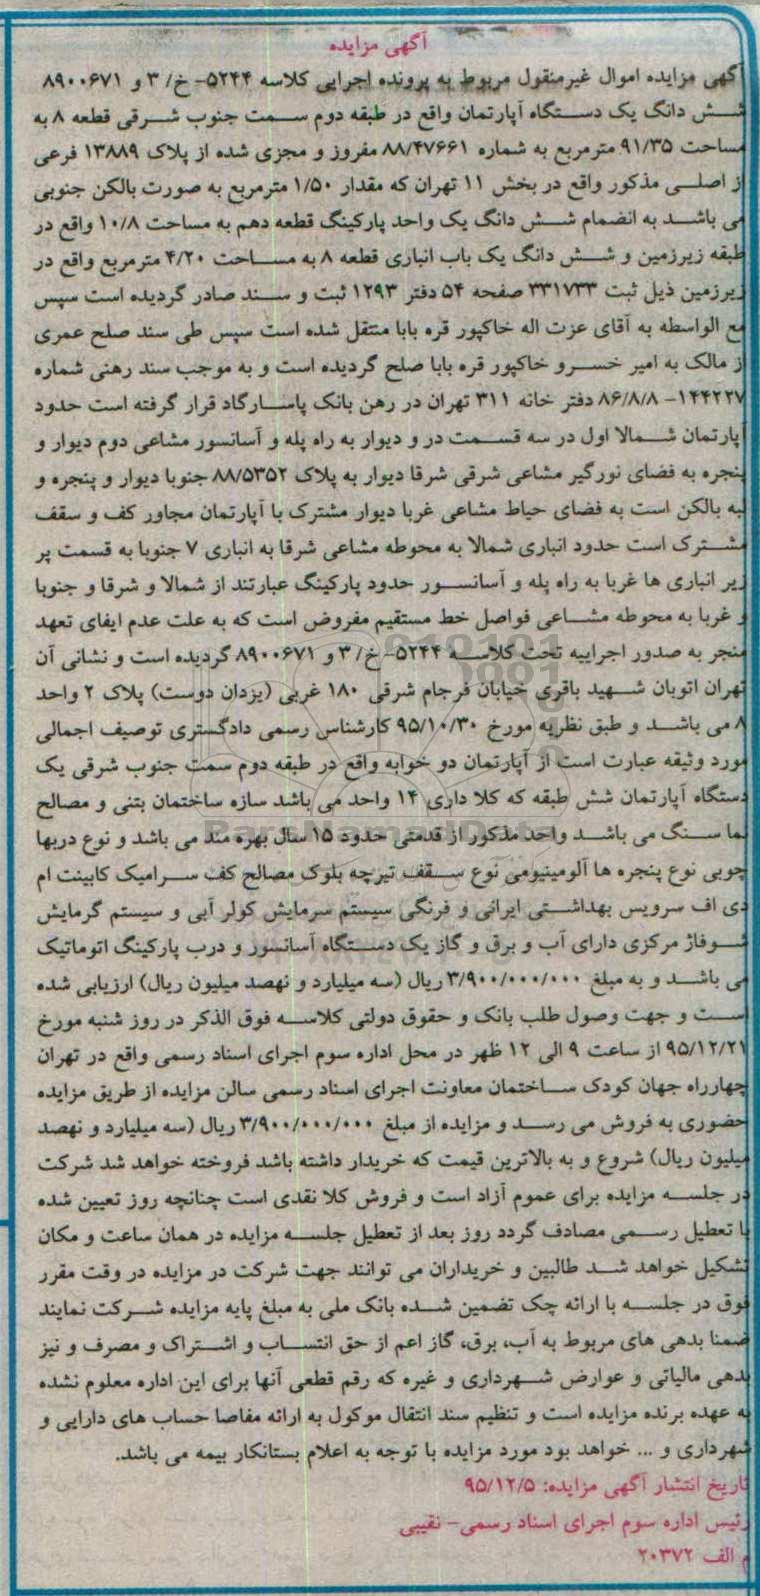 آگهی مزایده
آگهی مزایده اموال غیرمنقول مربوط به پرونده اجرایی کلاسه ۵۲۴۴- خ/ ۳ و ۸۹۰۰۶۷۱
شش دانگ یک دستگاه آپارتمان واقع در طبقه دوم سمت جنوب شرقی قطعه ۸ به
مساحت ۹۱/۳۵ مترمربع به شماره ۸۸/۴۷۶۶۱ مفروز و مجزی شده از پلاک ۱۳۸۸۹ فرعی
از اصلی مذکور واقع در بخش ۱۱ تهران که مقدار ۱/۵۰ مترمربع به صورت بالکن جنوبی
می باشد به انضمام شش دانگ یک واحد پارکینگ قطعه دهم به مساحت ۱۰/۸ واقع در
طبقه زیرزمین و شش دانگ یک باب انباری قطعه ۸ به مساحت ۴/۲۰ مترمربع واقع در
زیرزمین ذیل ثبت ۳۳۱۷۳۳ صفحه ۵۴ دفتر ۱۲۹۳ ثبت و سند صادر گردیده است سپس
مع الواسطه به آقای عزت اله خاکپور قره بابا منتقل شده است سپس طی سند صلح عمری
از مالک به امیر خسرو خاکپور قره بابا صلح گردیده است و به موجب سند رهنی شماره
۱۴۴۲۲۷- ۸۶/۸/۸ دفتر خانه ۳۱۱ تهران در رهن بانک پاسارگاد قرار گرفته است حدود
آپارتمان شمالا اول در سه قسمت در و دیوار به راه پله و آسانسور مشاعی دوم دیوار و
پنجره به فضای نورگیر مشاعی شرقی شرقا دیوار به پلاک ۸۸/۵۳۵۲ جنوبا دیوار و پنجره و
لبه بالکن است به فضای حیاط مشاعی غربا دیوار مشترک با آپارتمان مجاور کف و سقف
مشترک است حدود انباری شمالا به محوطه مشاعی شرقا به انباری ۷ جنوبا به قسمت پر
زیر انباری ها غربا به راه پله و آسانسور حدود پارکینگ عبارتند از شمالا و شرقا و جنوبا
و غربا به محوطه مشاعی فواصل خط مستقیم مفروض است که به علت عدم ایفای تعهد
منجر به صدور اجراییه تحت کلاسه ۵۲۴۴- خ/ ۳ و ۸۹۰۰۶۷۱ گردیده است و نشانی آن
تهران اتوبان شهید باقری خیابان فرجام شرقی ۱۸۰ غربی (یزدان دوست) پلاک ۲ واحد
۸ می باشد و طبق نظریه مورخ ۹۵/۱۰/۳۰ کارشناس رسمی دادگستری توصیف اجمالی
مورد وثیقه عبارت است از آپارتمان دو خوابه واقع در طبقه دوم سمت جنوب شرقی یک
دستگاه آپارتمان شش طبقه که کلا داری ۱۴ واحد می باشد سازه ساختمان بتنی و مصالح
نما سنگ می باشد واحد مذکور از قدمتی حدود ۱۵ سال بهره مند می باشد و نوع دربها
چوبی نوع پنجره ها آلومینیومی نوع سقف تیرچه بلوک مصالح کف سرامیک کابینت ام
دی اف سرویس بهداشتی ایرانی و فرنگی سیستم سرمایش کولر آبی و سیستم گرمایش
شوفاژ مرکزی دارای آب و برق و گاز یک دستگاه آسانسور و درب پارکینگ اتوماتیک
می باشد و به مبلغ ۳/۹۰۰/۰۰۰/۰۰۰ ریال (سه میلیارد و نهصد میلیون ریال) ارزیابی شده
است و جهت وصول طلب بانک و حقوق دولتی کلاسه فوق الذکر در روز شنبه مورخ
۹۵/۱۲/۲۱ از ساعت ۹ الی ۱۲ ظهر در محل اداره سوم اجرای اسناد رسمی واقع در تهران
چهارراه جهان کودک ساختمان معاونت اجرای اسناد رسمی سالن مزایده از طریق مزایده
حضوری به فروش می رسد و مزایده از مبلغ ۳/۹۰۰/۰۰۰/۰۰۰ ریال (سه میلیارد و نهصد
میلیون ریال) شروع و به بالاترین قیمت که خریدار داشته باشد فروخته خواهد شد شرکت
در جلسه مزایده برای عموم آزاد است و فروش کلا نقدی است چنانچه روز تعیین شده
با تعطیل رسمی مصادف گردد روز بعد از تعطیل جلسه مزایده در همان ساعت و مکان
تشکیل خواهد شد طالبین و خریداران می توانند جهت شرکت در مزایده در وقت مقرر
فوق در جلسه با ارائه چک تضمین شده بانک ملی به مبلغ پایه مزایده شرکت نمایند
ضمنا بدهی های مربوط به آب، برق، گاز اعم از حق انتساب و اشتراک و مصرف و نیز
بدهی مالیاتی و عوارض شهرداری و غیره که رقم قطعی آنها برای این اداره معلوم نشده
به عهده برنده مزایده است و تنظیم سند انتقال موکول به ارائه مفاصا حساب های دارایی و
شهرداری و ... خواهد بود مورد مزایده با توجه به اعلام بستانکار بیمه می باشد.
تاریخ انتشار آگهی مزایده: ۹۵/۱۲/۵
رئیس اداره سوم اجرای اسناد رسمی- نقیبی
م الف ۲۰۳۷۲